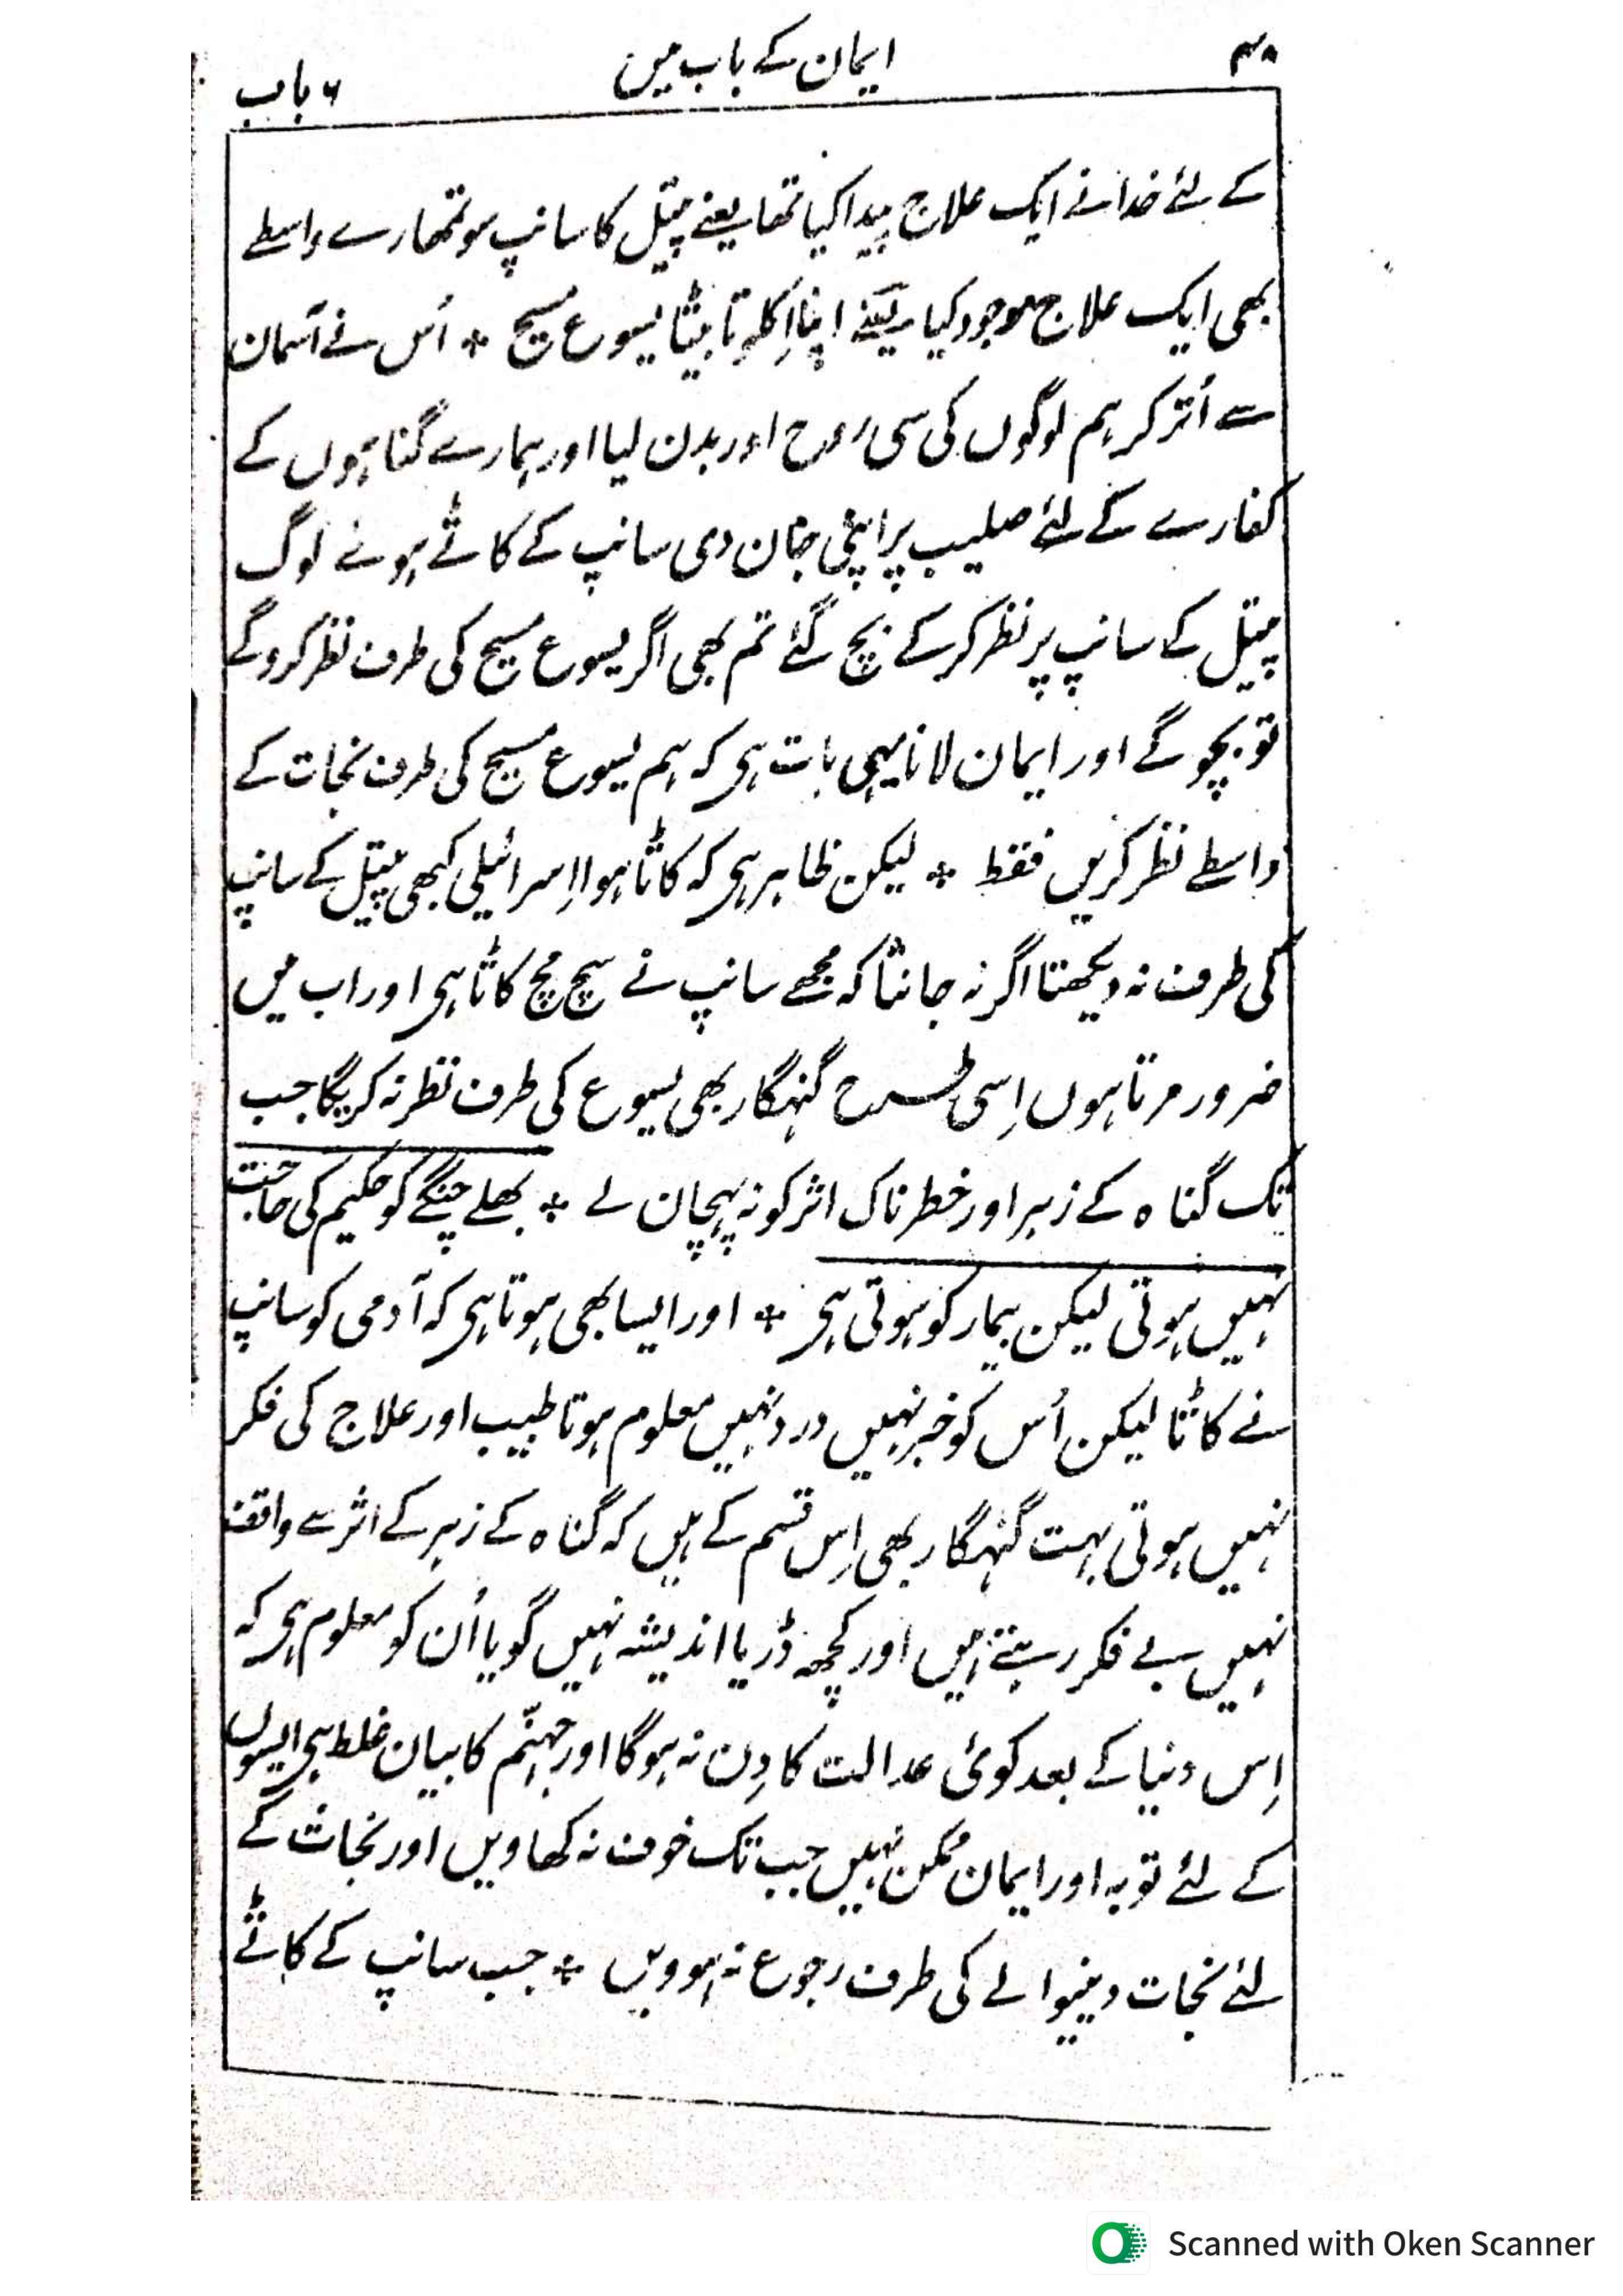 ۴۸ ایمان کے باب میں ۶ باب
کے لئے خدا نے ایک علاج پیدا کیا تھا یعنے پیتل کا سانپ سو تمھارے واسطے
بھی ایک علاج موجود کیا یعنے اپنا اِکلوتا بیٹا یسوع مسیح * اُس نے آسمان
سے اُتر کر ہم لوگوں کی سی روح اور بدن لیا اور ہمارے گناہوں کے
کفارے کے لئے صلیب پر اپنی جان دی سانپ کے کاٹے ہوئے لوگ
پیتل کے سانپ پر نظر کر کے بچ گئے تم بھی اگر یسوع مسیح کی طرف نظر کروگے
تو بچوگے اور ایمان لانا یہی بات ہی کہ ہم یسوع مسیح کی طرف نجات کے
واسطے نظر کریں فقط * لیکن ظاہر ہی کہ کاٹا ہوا اِسرائیلی کبھی پیتل کے سانپ
کی طرف نہ دیکھتا اگر نہ جانتا کہ مجھے سانپ نے سچ مچ کاٹا ہی اور اب میں
ضرور مرتا ہوں اِسی طرح گنہگار بھی یسوع کی طرف نظر نہ کریگا جب
تک گناہ کے زہر اور خطرناک اثر کو نہ پہچان لے * بھلے چنگے کو حکیم کی حاجت
نہیں ہوتی لیکن بیمار کو ہوتی ہی * اور ایسا بھی ہوتا ہی کہ آدمی کو سانپ
نے کاٹا لیکن اُس کو خبر نہیں درد نہیں معلوم ہوتا طبیب اور علاج کی فکر
نہیں ہوتی بہت گنہگار بھی اِس قسم کے ہیں کہ گناہ کے زہر کے اثر سے واقف
نہیں بے فکر رہتے ہیں اور کچھ ڈر یا اندیشہ نہیں گویا اُن کو معلوم ہی کہ
اِس دنیا کے بعد کوئی عدالت کا دِن نہ ہوگا اور جہنّم کا بیان غلط ہی ایسوں
کے لئے توبہ اور ایمان ممکن نہیں جب تک خوف نہ کھاویں اور نجات کے
لئے نجات دینیوالے کی طرف رجوع نہ ہوویں * جب سانپ کے کاٹے
Scanned with Oken Scanner